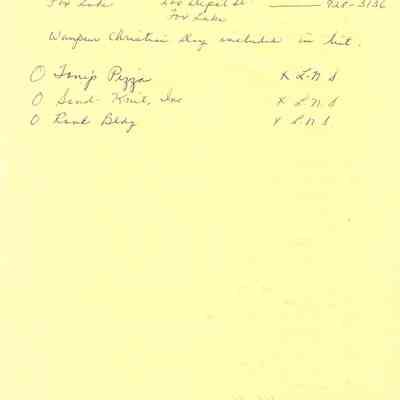 Fox Lake Depot St. 928-3136
Fox Lake
Waupun Christian Day included in list.
O Tony's Pizza X L-N S
O Sand-Knit, Inc X L N S
O Rank Bldg X L N S